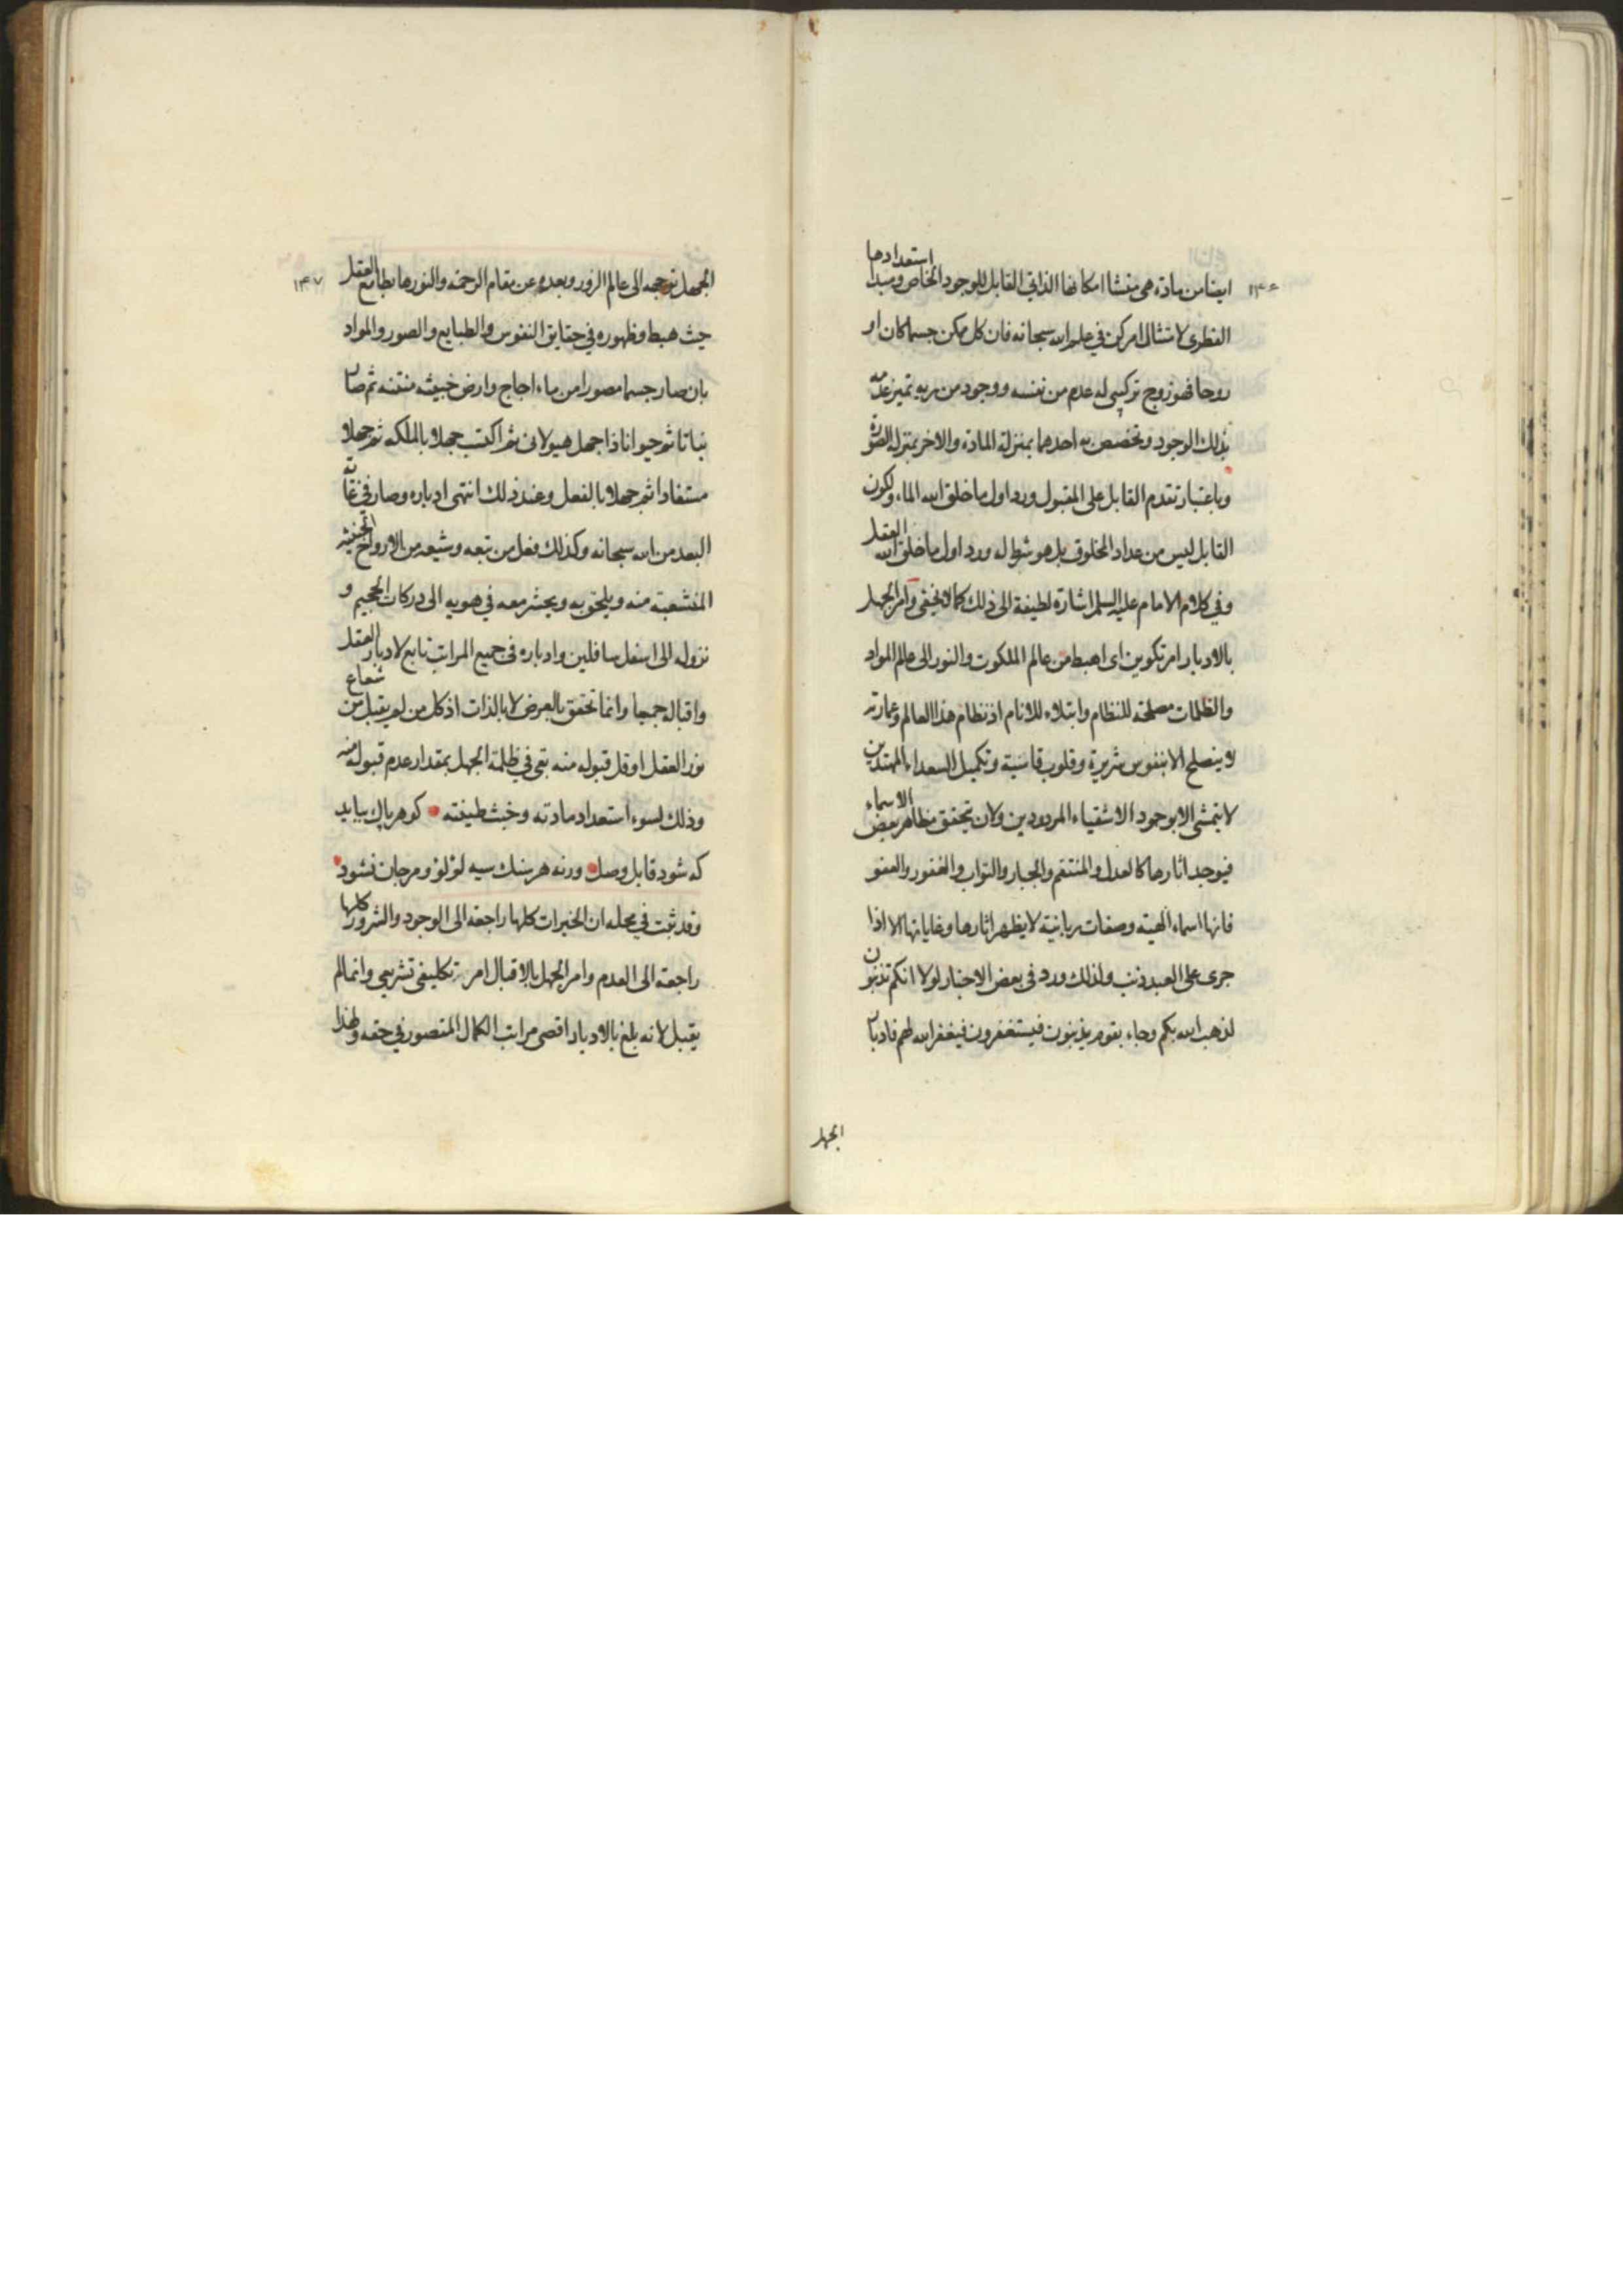 ۱۴۶
ايضا من مادة هى منشا امكانها الذاتي القابل للوجود الخاص ومبدا استعدادها
الفطرى لامتثال امر كن في علم الله سبحانه فان كل ممكن جسما كان او
روحا فهو زوج تركيبى له عدم من نفسه ووجود من ربه تميز عدمه
بذلك الوجود وتخصص به احدهما بمنزلة المادة والاخر بمنزلة الصورة
وباعتبار تقدم القابل على المقبول ورد اول ما خلق الله الماء ولكون
القابل ليس من عداد المخلوق بل هو شرط له ورد اول ما خلق الله العقل
وفي كلام الامام عليه السلم اشارة لطيفة الى ذلك كما لا يخفى وامر الجهل
بالادبار امر تكوين اى اهبط من عالم الملكوت والنور الى عالم المواد
والظلمات مصلحة للنظام وابتلاء للانام اذ نظام هذا العالم وعمارته
لا ينصلح الا بنفوس شريرة وقلوب قاسية وتكميل السعداء المهتدين
لا يتمشى الا بوجود الاشقياء المردودين ولان تحقق مظاهر بعض الاسماء
فيوجد اثارها كالعدل والمنتقم والجبار والتواب والغفور والعفو
فانها اسماء الهية وصفات ربانية لا يظهر اثارها وغاياتها الا اذا
جرى على العبد ذنب ولذلك ورد فى بعض الاخبار لولا انكم تذنبون
لذهب الله بكم وجاء بقوم يذنبون فيستغفرون فيغفر الله لهم فادبار
الجهل
۱۴۷
الجهل توجهه الى عالم الزور وبعده عن مقام الرحمة والنور هابطا مع العقل
حيث هبط وظهوره في حقايق النفوس والطبايع والصور والمواد
بان صار جسما مصورا من ماء اجاج وارض خبيثه منتنه ثم صار
نباتا ثم حيوانا ذا جهل هيولانى ثم اكتسب جهلا بالملكه ثم جهلا
مستفادا ثم جهلا بالفعل وعند ذلك انتهى ادباره وصار في غاية
البعد من الله سبحانه وكذلك فعل من تبعه وشيعه من الارواح الخبيثه
المنشعبة منه ويلحق به ويحشر معه في هويه الى دركات الجحيم و
نزوله الى اسفل سافلين وادباره فى جميع المراتب تابع لادبار العقل
واقباله جميعا وانما تحقق بالعرض لا بالذات اذ كل من لم يقبل من شعاع
نور العقل او قل قبوله منه بقى في ظلمة الجهل بمقدار عدم قبوله منه
وذلك لسوء استعداد مادته وخبث طينته كوهر پاك ببايد
كه شود قابل وصل ورنه هر سنك سيه لؤلؤ ومرجان نشود
وقد ثبت في محله ان الخيرات كلها راجعة الى الوجود والشرور كلها
راجعة الى العدم وامر الجهل بالاقبال امر تكليفى تشريعي وانما لم
يقبل لانه بلغ بالادبار اقصى مراتب الكمال المتصور في حقه ولهذا